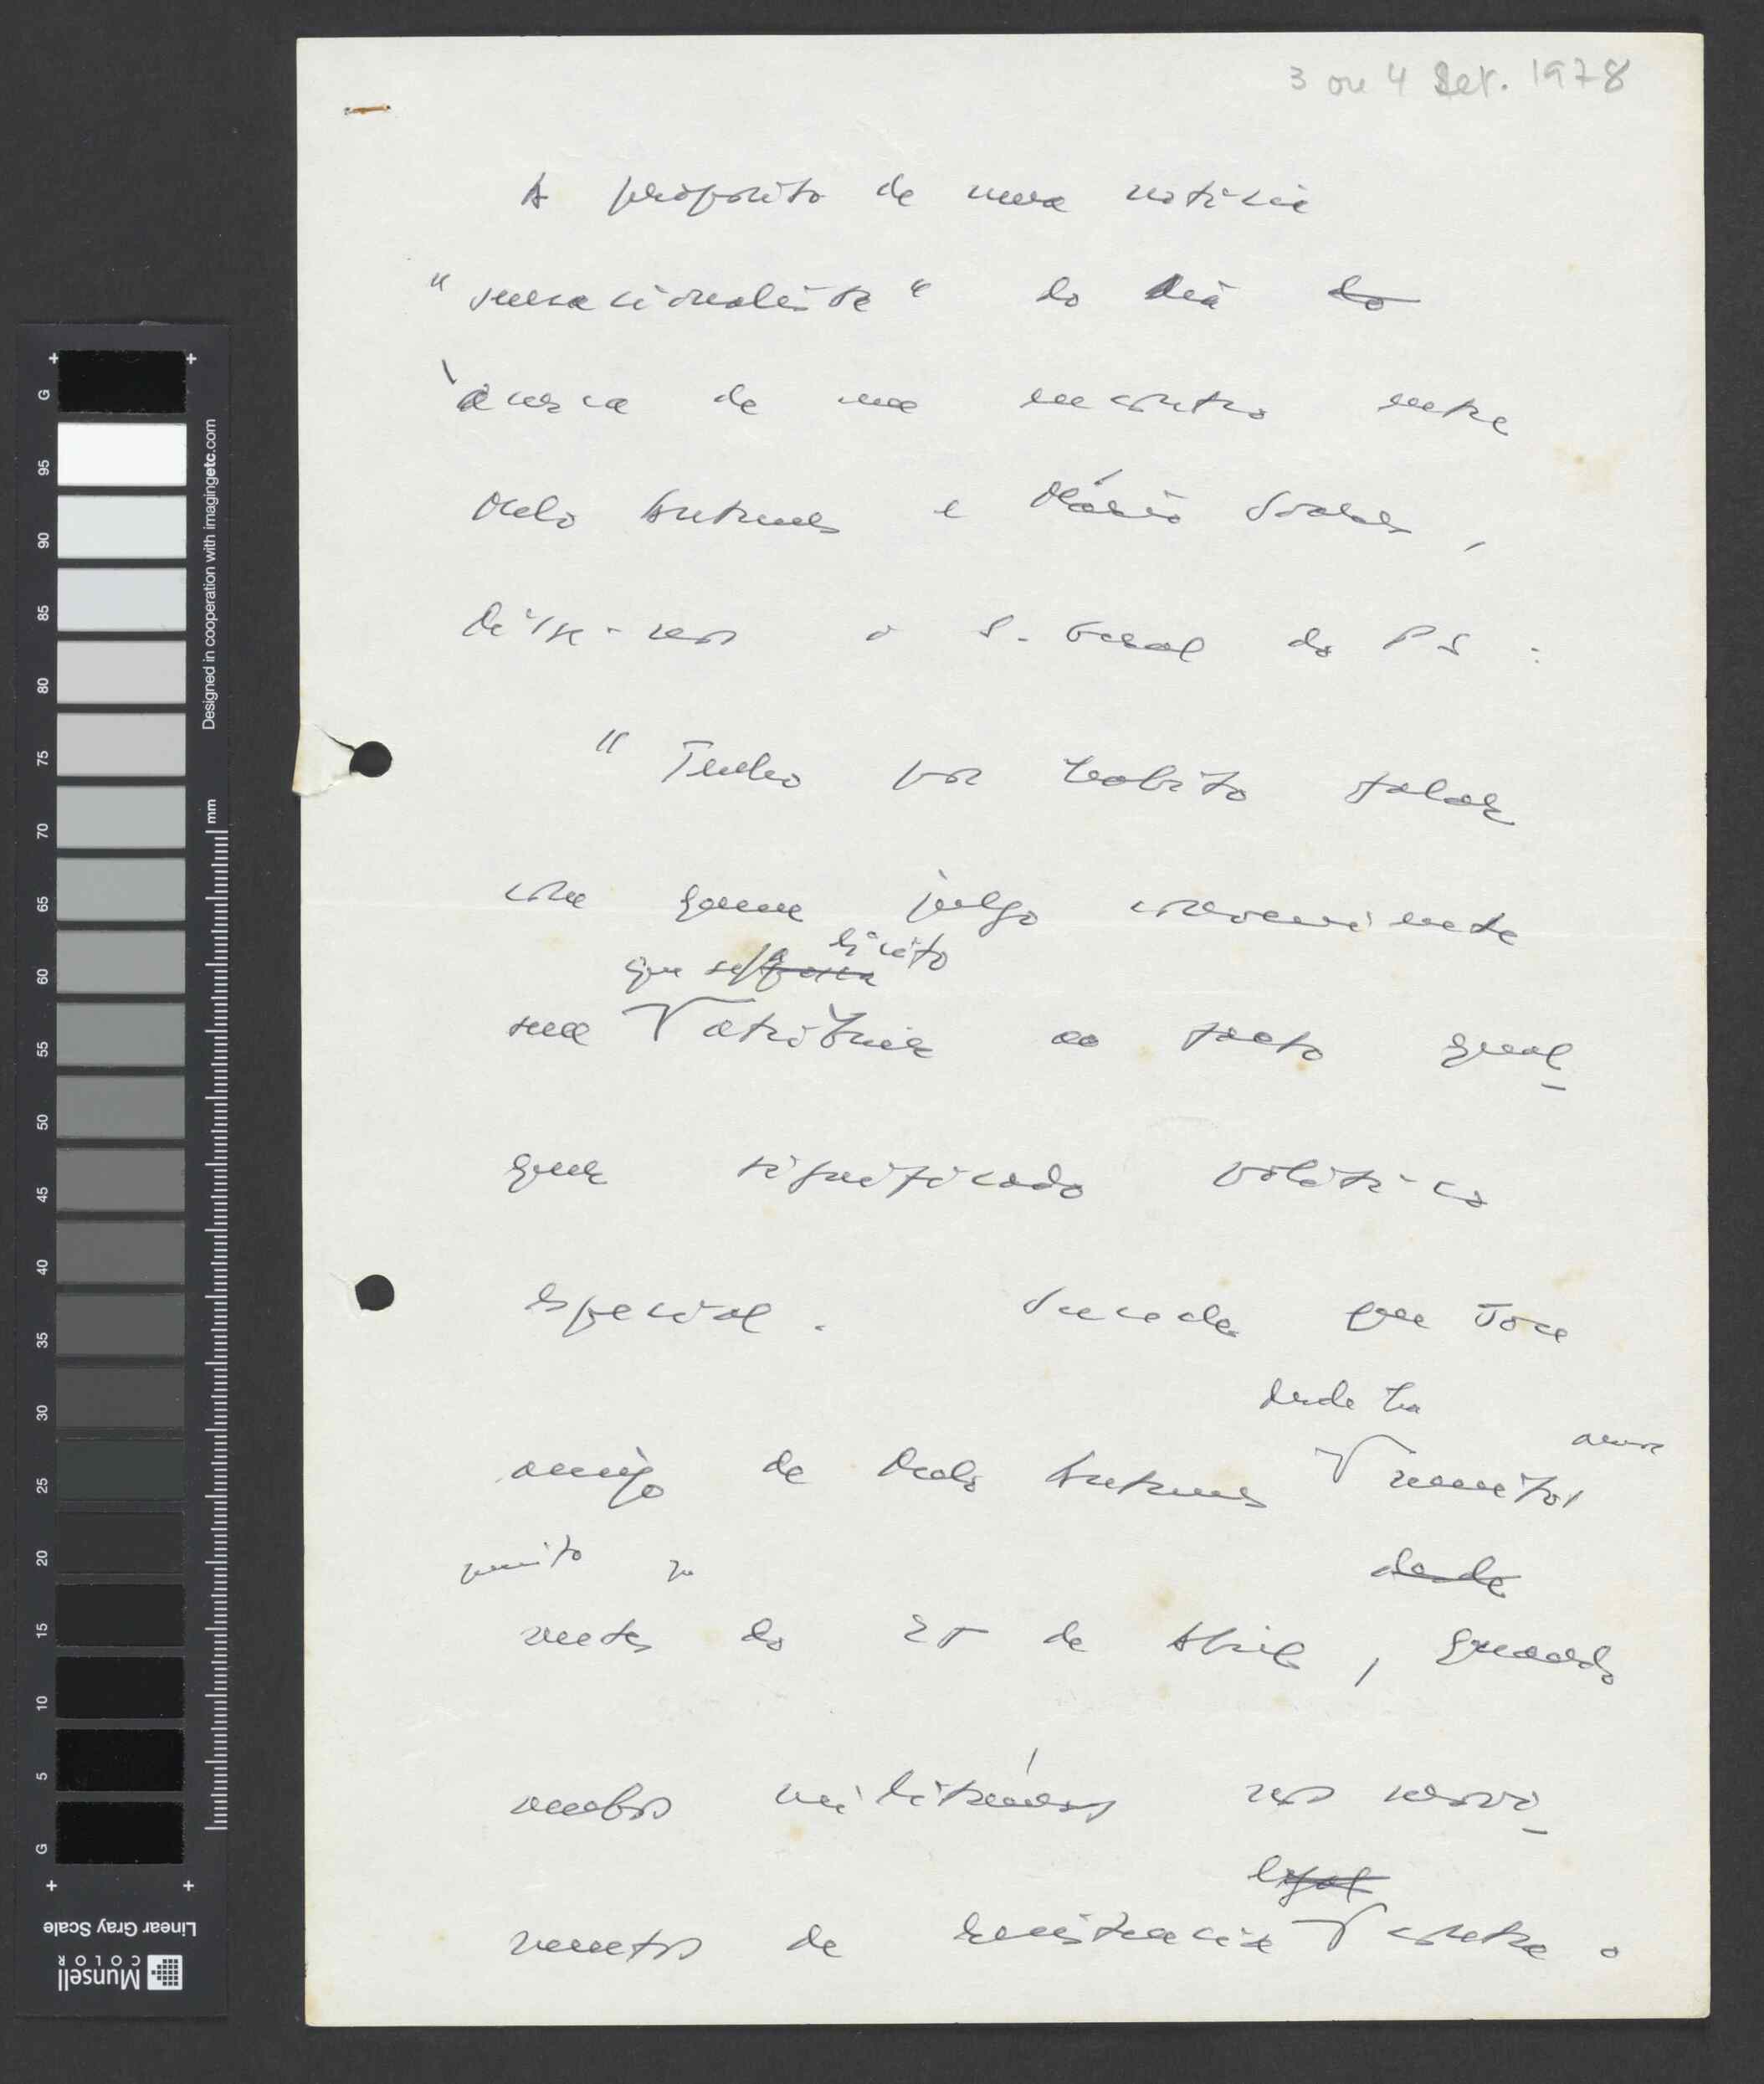 3 ou 4 Set. 1978
A propósito de uma notícia
"sensacionalista" do Dia do
àcerca de um encontro entre
Melo Antunes e Mário Soares,
disse-nos o S. Geral do PS:
"Tenho por hábito falar
com quem julgo conveniente
que seja lícito
sem atribuir ao facto qual-
quer significado político
especial. Sucede que sou
desde há
amigo de Melo Antunes muitos anos
muito
antes do 25 de Abril, quando
desde
ambos militávamos nos movi-
legal
mentos de resistência contra o
G 95 90 85 80 75 70 65 60 55 50 45 40 35 30 25 20 15 10 5 G
mm
Designed in cooperation with imagingetc.com
Linear Gray Scale
Munsell
COLOR